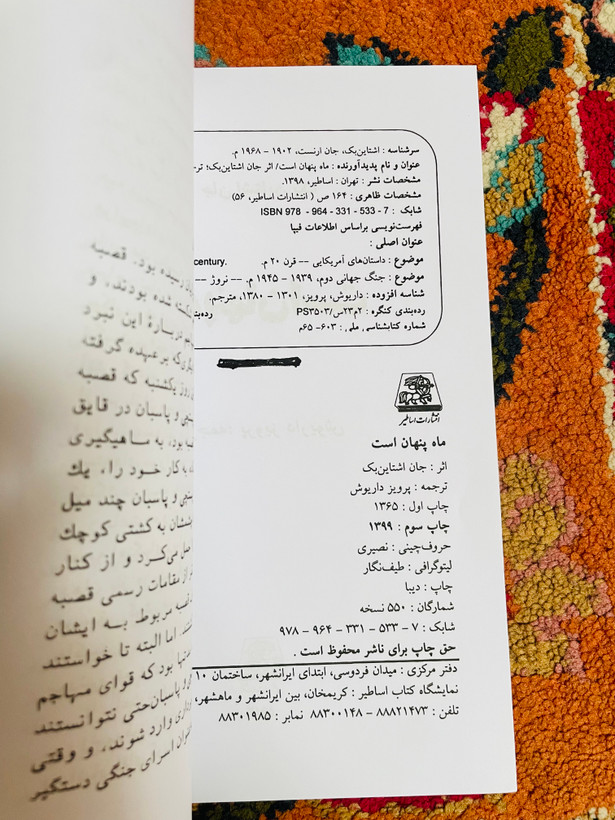 سرشناسه : اشتاین‌بک، جان ارنست، ۱۹۰۲ - ۱۹۶۸ م.
عنوان و نام پدیدآورنده : ماه پنهان است/ اثر جان اشتاین‌بک؛ تر-
مشخصات نشر : تهران : اساطیر، ۱۳۹۸.
مشخصات ظاهری : ۱۶۴ ص ( انتشارات اساطیر، ۵۶)
شابک : ISBN 978 - 964 - 331 - 533 - 7
فهرست‌نویسی براساس اطلاعات فیپا
عنوان اصلی :
موضوع : داستان‌های آمریکایی -- قرن ۲۰ م. century.
موضوع : جنگ جهانی دوم، ۱۹۳۹ - ۱۹۴۵ م. -- نروژ --
شناسه افزوده : داریوش، پرویز، ۱۳۰۱ - ۱۳۸۰، مترجم.
رده‌بندی کنگره : ۲م۲۳س/PS۳۵۰۳ رده‌بند
شماره کتابشناسی ملی : ۶۰۳- ۶۵م
انتشارات اساطیر
ماه پنهان است
اثر : جان اشتاین‌بک
ترجمه : پرویز داریوش
چاپ اول : ۱۳۶۵
چاپ سوم : ۱۳۹۹
حروف‌چینی : نصیری
لیتوگرافی : طیف‌نگار
چاپ : دیبا
شمارگان : ۵۵۰ نسخه
شابک : ۷ - ۵۳۳ - ۳۳۱ - ۹۶۴ - ۹۷۸
حق چاپ برای ناشر محفوظ است .
دفتر مرکزی : میدان فردوسی، ابتدای ایرانشهر، ساختمان ۱۰
نمایشگاه کتاب اساطیر : کریمخان، بین ایرانشهر و ماهشهر،
تلفن : ۸۸۸۲۱۴۷۳ - ۸۸۳۰۰۱۴۸ نمابر : ۸۸۳۰۱۹۸۵
رسیده بود. قصبه
شده بودند، و
دربارهٔ این نبرد
که بر عهده گرفته
روز یکشنبه که قصبه
و پاسبان در قایق
بود، به ماهیگیری
به کار خود را، یك
و پاسبان چند میل
به کشتی کوچك
می‌کرد و از کنار
از مقامات رسمی قصبه
مربوط به ایشان
اما البته تا خواستند
بود که قوای مهاجم
و پاسبان حتی نتوانستند
وارد شوند، و وقتی
اسرای جنگی دستگیر